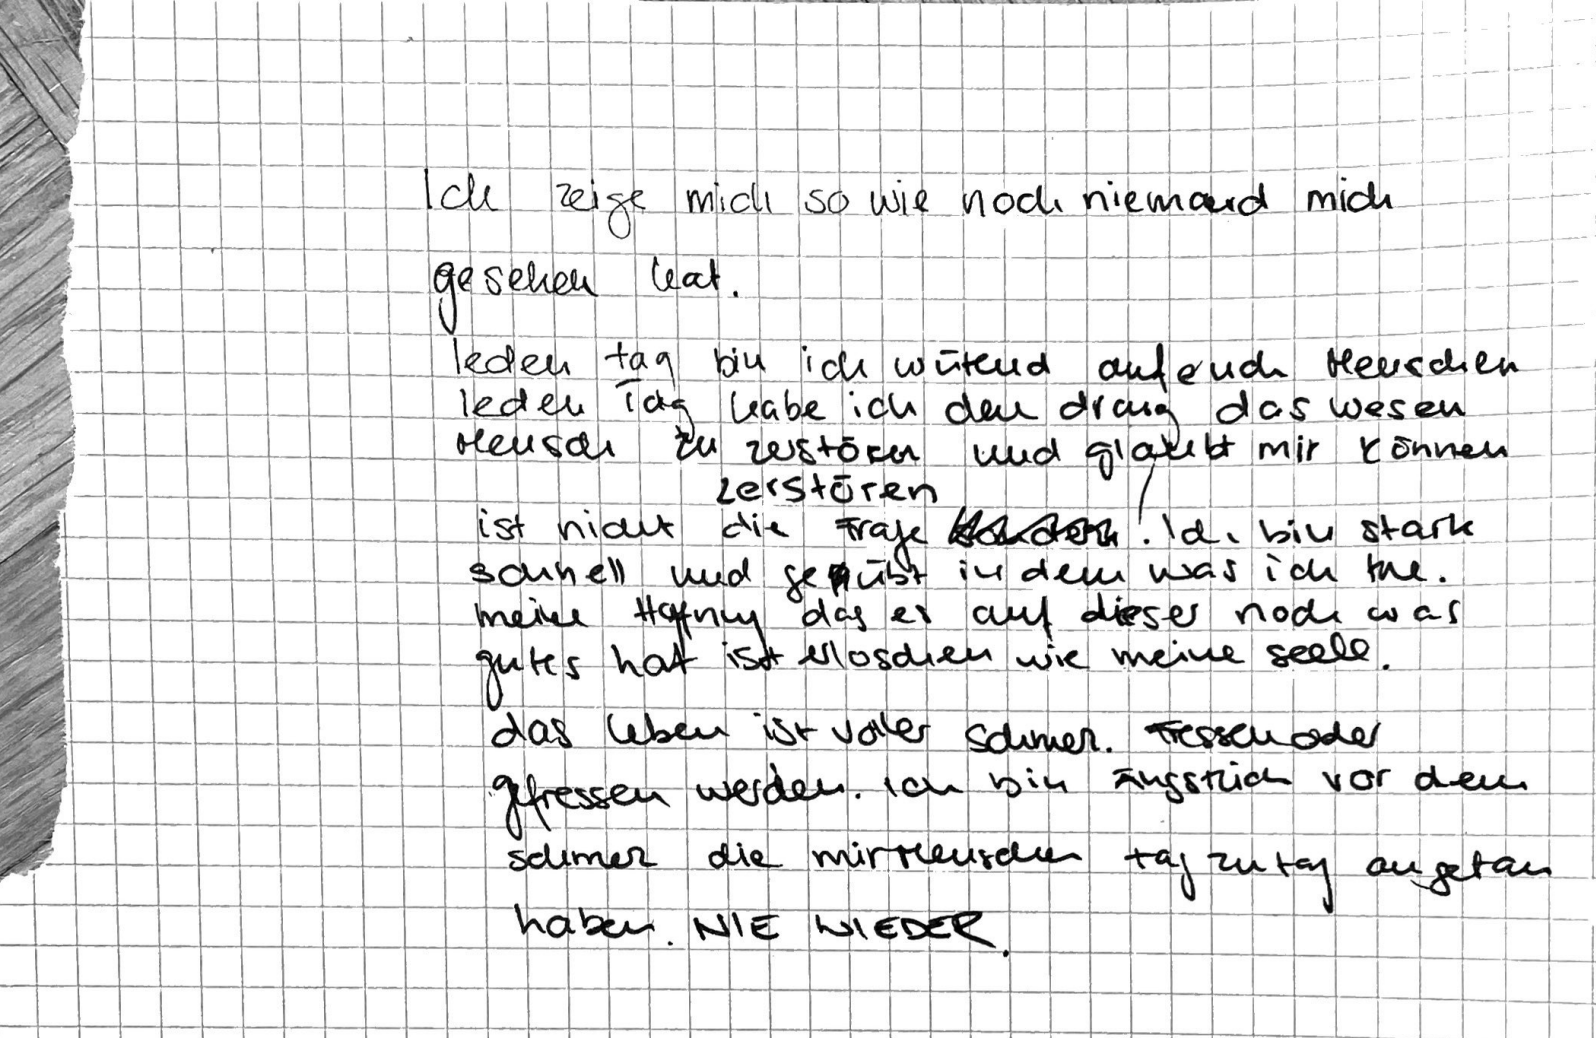 Ich zeige mich so wie noch niemand mich
gesehen hat.
Jeden tag bin ich wütend auf euch Menschen
Jeden Tag habe ich den drang das wesen
Mensch zu zerstören und glaubt mir können
zerstören
ist nicht die Frage ! Ich bin stark
schnell und geübt in dem was ich tue.
meine Hoffnug das es auf dieser noch was
gutes hat ist erloschen wie meine seele.
das leben ist voller schmerz. Fressen oder
gefressen werden. Ich bin Ängstlich vor dem
schmerz die mir Menschen tag zu tag angetan
haben. NIE WIEDER.